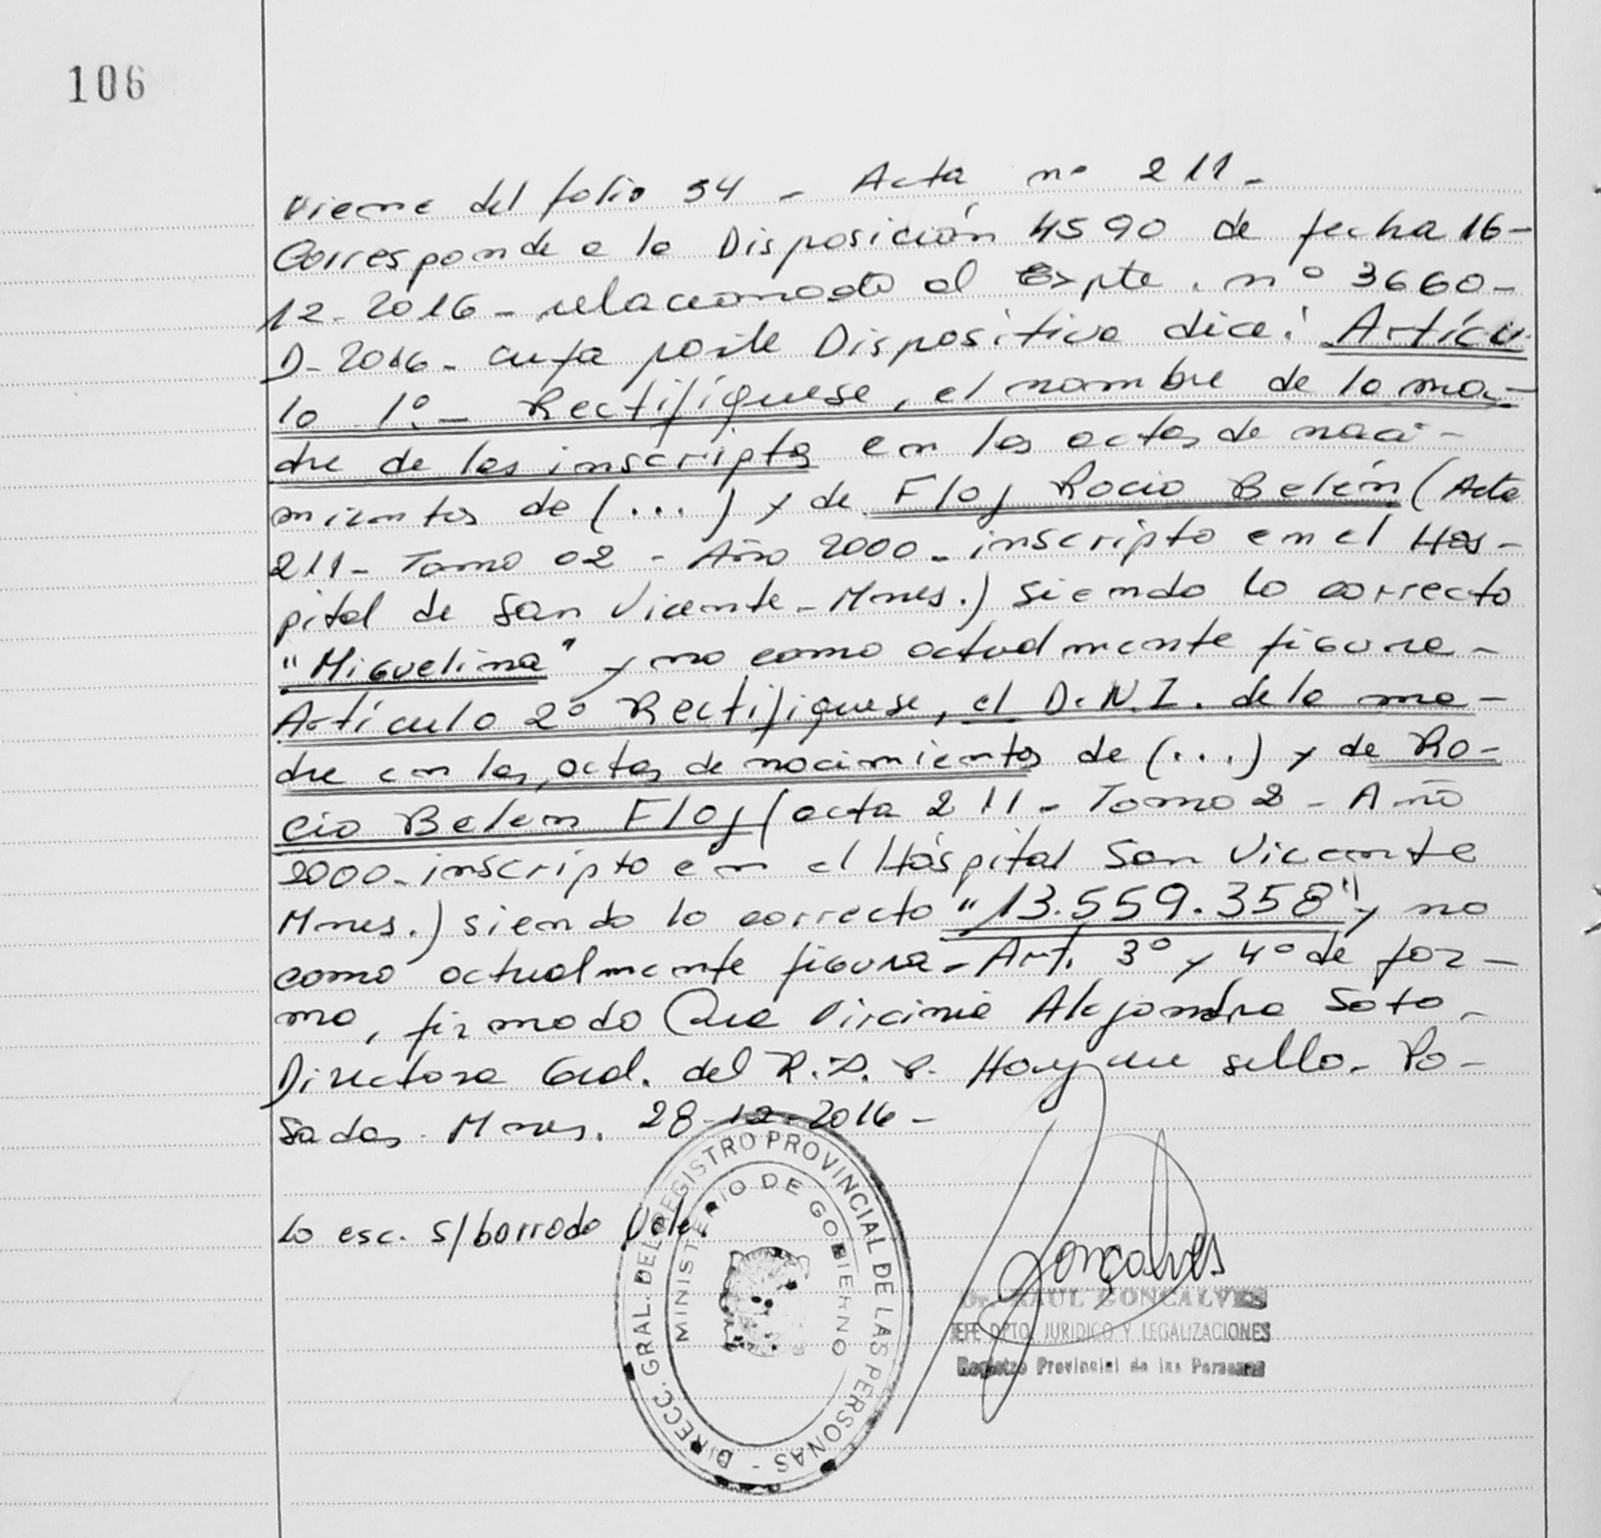 106
Viene del folio 54 - Acta nº 211-
Corresponde a la Disposición 4590 de fecha 16-
12-2016- relacionado al Expte. nº 3660-
D-2016- cuya parte Dispositiva dice: Artícu
lo 1º.- Rectifíquese, el nombre de la ma-
dre de los inscriptos en las actas de naci-
mientos de (...) y de Floj Rocio Belén (Acta
211- Tomo 02 - Año 2000- inscripto en el Hos-
pital de San Vicente-Mnes.) siendo lo correcto
"Miguelina" y no como actualmente figura-
Artículo 2º Rectifíquese, el D.N.I. de la ma-
dre en las actas de nacimientos de (...) y de Ro-
cio Belen Floj (acta 211- Tomo 2 - Año
2000- inscripto en el Hospital San Vicente
Mnes.) siendo lo correcto "13.559.358" y no
como actualmente figura- Art. 3º y 4º de for-
ma, firmado Virginia Alejandra Soto-
Directora Gral. del R.P.P. Hay un sello- Po-
sadas- Mnes. 28-12-2016-
Lo esc. s/borrado Vale.
DIRECC. GRAL. DEL REGISTRO PROVINCIAL DE LAS PERSONAS -
MINISTERIO DE GOBIERNO
Gonçalves
Dr. RAUL GONCALVES
JEFE DPTO. JURIDICO Y LEGALIZACIONES
Registro Provincial de las Personas